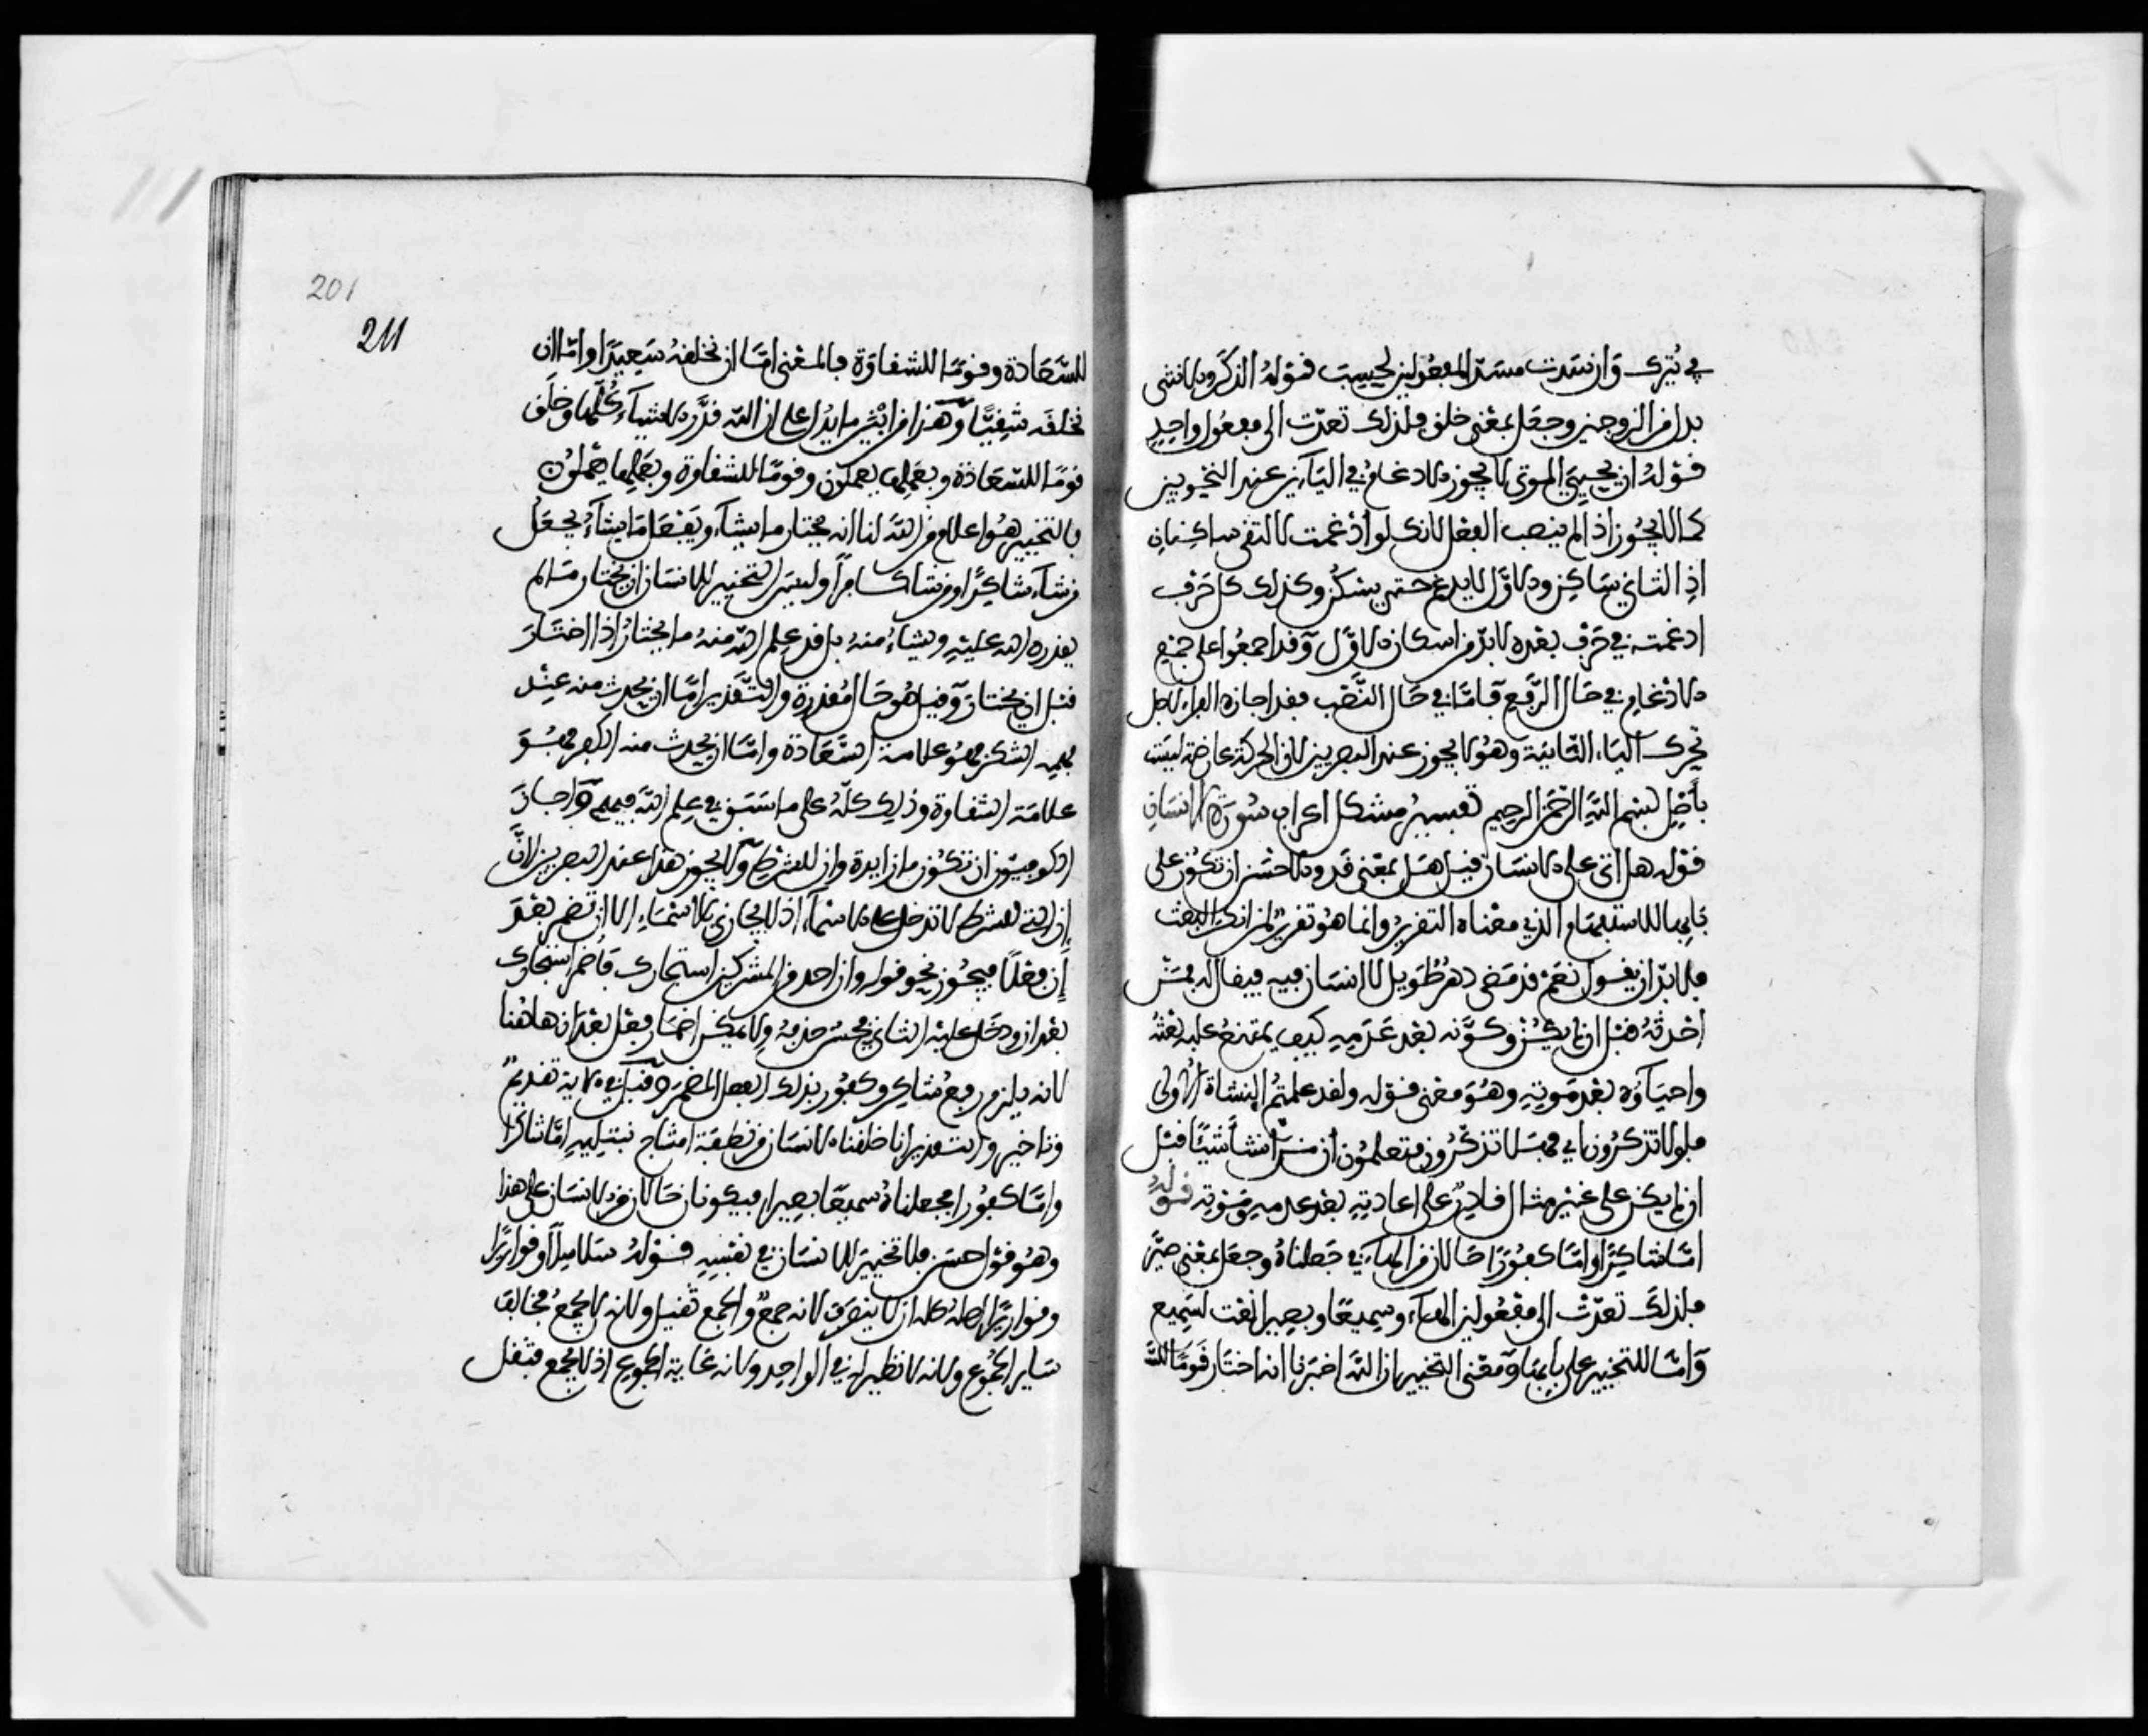 في يُترك وَان سَدت مسَدّ المفعُولين لحَسِبَ قوْلهُ الذكَر والانثى
بدل من الزوجين وجعَل بمعْنى خلق فلذلك تعدّت الى مفعُول واحِدٍ
قوْلهُ ان يحْييَ الموتى لا يجُوز الادغامُ في اليَآءَين عند النحْويين
كما لا يجُوز اذا لم ينصب الفعْل لانك لو ادْغمت لالتقى ساكِنانِ
اذِ الثاني سَاكِن والاوّل لا يدغم حتى يسْكن وكذلك كل حَرْف
ادغمته في حَرْف بعْده لا بدّ من اسكان الاوّل وَقد اجمعُوا على منع
الادْغام في حَال الرّفع فامّا في حَال النَّصْب فقد اجازه الفراء لاجل
تحرك اليَاء الثانيَة وهُو لا يجوز عند البصريين لان الحركة عارضة ليسَت
بأصْلٍ بسْم اللهِ الرّحمٰن الرحِيم تفسِيرُ مشكل اعراب سُورَة الانسَانِ
قوْله هل اتى على الانسَان قيل هَل بمعْنى قَد والاحْسَن ان تكُون على
بَابِها للاسْتفهام الذي معْناه التقرِيرُ وانما هُو تقرير لمن انكر البعْث
فلا بدّ ان يقُول نعَمْ قد مَضى دهْرٌ طَويل لا انسَان فيه فيقال له فمَنْ
احْدثهُ قبْل ان لم يكُنْ وكوَّنه بعْد عَدَمِهِ كيف يمتنعُ عليه بعْثهُ
واحيَاؤه بعْد مَوتِهِ وهُوَ معْنى قوْله ولقد علمتُم النشأة الاُولى
فلولا تذكرُون اي فهَلا تذكَّرُون فتعلمُون ان منْ انشأ شَيئًا قبْل
ان لم يكن على غيْر مثال قادِرٌ على اعادتِهِ بعْد عدمه ومَوْتِه قوْلهُ
امّا شاكِرًا وامّا كفُوْرًا حَالان من الهَآء في جَعلناهُ وجعَل بمعْنى صيّر
فلذلكَ تعدّتْ الى مفعُولين الهَاء وسمِيعًا وبصِيرا نعْت لسَمِيع
وَامّا للتخيير على بابهَا وَمعْنى التخيير ان اللهَ اخبَرنا انه اختَار قَومًا للسَّـ
201
211
للسَّعَادة وقومًا للشقاوَة فالمعْنى امّا ان نخلقهُ سَعِيدًا وامّا ان
نخلقَه شقِيًّا وَهذا من ابْيَن ما يدُل على ان الله قدَّر الاشيآء كلَّها وخلَق
قومًا للسّعَادَة وبعَملها يعمَلون وقومًا للشقاوة وبعَملِها يعْملوُن
فالتخيير هُو اعلام من الله لنا انه يختار ما يشآء ويَفْعَل مَا يشآءُ يجعَلُ
من شآء شاكِرًا ومن شا كافراً وليسَ التخيير للانسَان ان يختار مَا لم
يقدره الله عليْه ويشاءُ منهُ بل قد عِلم الله منهُ ما يختارُ اذا اختَارَ
قبْل ان يختارَ وَقيل هُو حَال مُقدرَة والتَّقدير امّا ان يحْدث منه عِنْد
فهمِهِ الشكر فهُو علامة السَّعَادة وامّا ان يحْدث منه الكفر فهُوَ
علامَة الشقاوة وذلك كلّهُ على ما سَبَق في عِلم اللهِ فيهم وَاجَازَ
الكوفيّون ان تكُون ما زايدة وان للشرْط وَلا يجُوز هذا عند البصريين لانَّ
إنْ التي للشرْط لا تدخل على الاسْمَآء اذ لا يُجازى بالاسْمَاءِ الا ان تضمر بعْدَ
إنْ فعْلًا فيجُوز نحو قوله وان احد من المشركين استجارك فأضْمر استجَارك
بعْد ان ودَل عليْه الثاني فحسُن حذفهُ ولا يمكن اضمَار فعْل بعْد ان هاهُنا
لانه يلزم رفعُ شاكِر وكفُور بذلك الفعل المضمر وَقيل في الايَة تقدِيمٌ
وتاخير والتقدير انا خلقناه الانسَان من نطفَة امشاج نبتَلِيهِ امّا شاكرًا
وامّا كفُورا فجعلناهُ سميعًا بصِيرا فيكونان حَالان من الانسَان على هذا
وهُو قوْل حسَن فلا تخييرَ للانسَان في نفسِهِ قوْلهُ سَلاسِلاً وقوارِيرًا
وقوارِيرًا اصلهُ كله ان لا ينصَرِف لانه جمعٌ والجمع ثقيل ولانه لا يُجمعُ فخالفَ
سَاير الجُموع ولانه لا نظير له في الواحِد ولانه غايَة الجموع اذ لا يُجمع فثقل